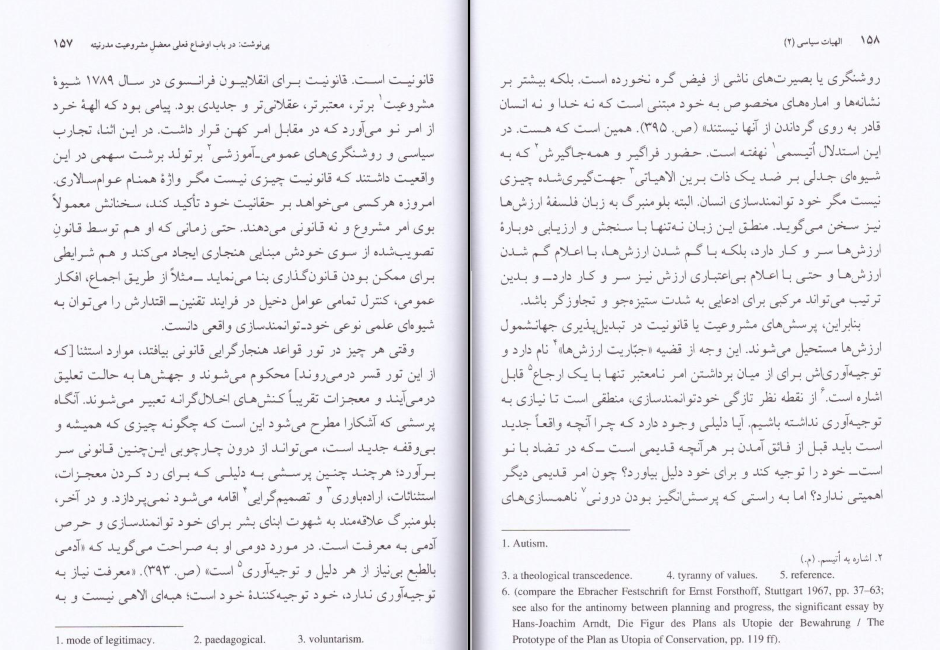 پی‌نوشت: در باب اوضاع فعلی معضلِ مشروعیت مدرنیته ۱۵۷
قانونیت است. قانونیت برای انقلابیون فرانسوی در سال ۱۷۸۹ شیوهٔ
مشروعیت۱ برتر، معتبرتر، عقلانی‌تر و جدیدی بود. پیامی بود که الههٔ خرد
از امر نو می‌آورد که در مقابل امر کهن قرار داشت. در این اثنا، تجارب
سیاسی و روشنگری‌های عمومی‌ـ‌آموزشی۲ برتولد برشت سهمی در این
واقعیت داشتند که قانونیت چیزی نیست مگر واژهٔ همنام عوام‌سالاری.
امروزه هرکسی می‌خواهد بر حقانیت خود تأکید کند، سخنانش معمولاً
بوی امر مشروع و نه قانونی می‌دهند. حتی زمانی که او هم توسط قانونِ
تصویب‌شده از سوی خودش مبنایی هنجاری ایجاد می‌کند و هم شرایطی
برای ممکن بودن قانون‌گذاری بنا می‌نماید ــ‌مثلاً از طریق اجماع، افکار
عمومی، کنترل تمامی عوامل دخیل در فرایند تقنین‌ــ اقتدارش را می‌توان به
شیوه‌ای علمی نوعی خودـتوانمندسازی واقعی دانست.
وقتی هر چیز در تور قواعد هنجارگرایی قانونی بیافتد، موارد استثنا [که
از این تور قسر درمی‌روند] محکوم می‌شوند و جهش‌ها به حالت تعلیق
درمی‌آیند و معجزات تقریباً کنش‌های اخلال‌گرانه تعبیر می‌شوند. آنگاه
پرسشی که آشکارا مطرح می‌شود این است که چگونه چیزی که همیشه و
بی‌وقفه جدید است، می‌تواند از درون چارچوبی این‌چنین قانونی سر
برآورد؛ هرچند چنین پرسشی به دلیلی که برای رد کردن معجزات،
استثنائات، اراده‌باوری۳ و تصمیم‌گرایی۴ اقامه می‌شود نمی‌پردازد. و در آخر،
بلومنبرگ علاقه‌مند به شهوت ابنای بشر برای خود توانمندسازی و حرص
آدمی به معرفت است. در مورد دومی او به صراحت می‌گوید که «آدمی
بالطبع بی‌نیاز از هر دلیل و توجیه‌آوری۵ است» (ص. ۳۹۳). «معرفت نیاز به
توجیه‌آوری ندارد، خود توجیه‌کنندهٔ خود است؛ هبه‌ای الاهی نیست و به
1. mode of legitimacy. 2. paedagogical. 3. voluntarism.
۱۵۸ الهیات سیاسی (۲)
روشنگری یا بصیرت‌های ناشی از فیض گره نخورده است. بلکه بیشتر بر
نشانه‌ها و اماره‌های مخصوص به خود مبتنی است که نه خدا و نه انسان
قادر به روی گرداندن از آنها نیستند» (ص. ۳۹۵). همین است که هست. در
این استدلال اُتیسمی۱ نهفته است. حضور فراگیر و همه‌جاگیرش۲ که به
شیوه‌ای جدلی بر ضد یک ذات برین الاهیاتی۳ جهت‌گیری‌شده چیزی
نیست مگر خود توانمندسازی انسان. البته بلومنبرگ به زبان فلسفهٔ ارزش‌ها
نیز سخن می‌گوید. منطق این زبان نه‌تنها با سنجش و ارزیابی دوبارهٔ
ارزش‌ها سر و کار دارد، بلکه با گم شدن ارزش‌ها، با اعلام گم شدن
ارزش‌ها و حتی با اعلام بی‌اعتباری ارزش نیز سر و کار دارد‌ــ و بدین
ترتیب می‌تواند مرکبی برای ادعایی به شدت ستیزه‌جو و تجاوزگر باشد.
بنابراین، پرسش‌های مشروعیت یا قانونیت در تبدیل‌پذیری جهانشمول
ارزش‌ها مستحیل می‌شوند. این وجه از قضیه «جبّاریت ارزش‌ها»۴ نام دارد و
توجیه‌آوری‌اش برای از میان برداشتن امر نامعتبر تنها با یک ارجاع۵ قابل
اشاره است.۶ از نقطه نظر تازگی خودتوانمندسازی، منطقی است تا نیازی به
توجیه‌آوری نداشته باشیم. آیا دلیلی وجود دارد که چرا آنچه واقعاً جدید
است باید قبل از فائق آمدن بر هرآنچه قدیمی است ــ‌که در تضاد با نو
است‌ــ خود را توجیه کند و برای خود دلیل بیاورد؟ چون امر قدیمی دیگر
اهمیتی ندارد؟ اما به راستی که پرسش‌انگیز بودن درونی۷ ناهمسازی‌های
1. Autism.
۲. اشاره به اُتیسم. (م.)
3. a theological transcedence. 4. tyranny of values. 5. reference.
6. (compare the Ebracher Festschrift for Ernst Forsthoff, Stuttgart 1967, pp. 37–63;
see also for the antinomy between planning and progress, the significant essay by
Hans-Joachim Arndt, Die Figur des Plans als Utopie der Bewahrung / The
Prototype of the Plan as Utopia of Conservation, pp. 119 ff).